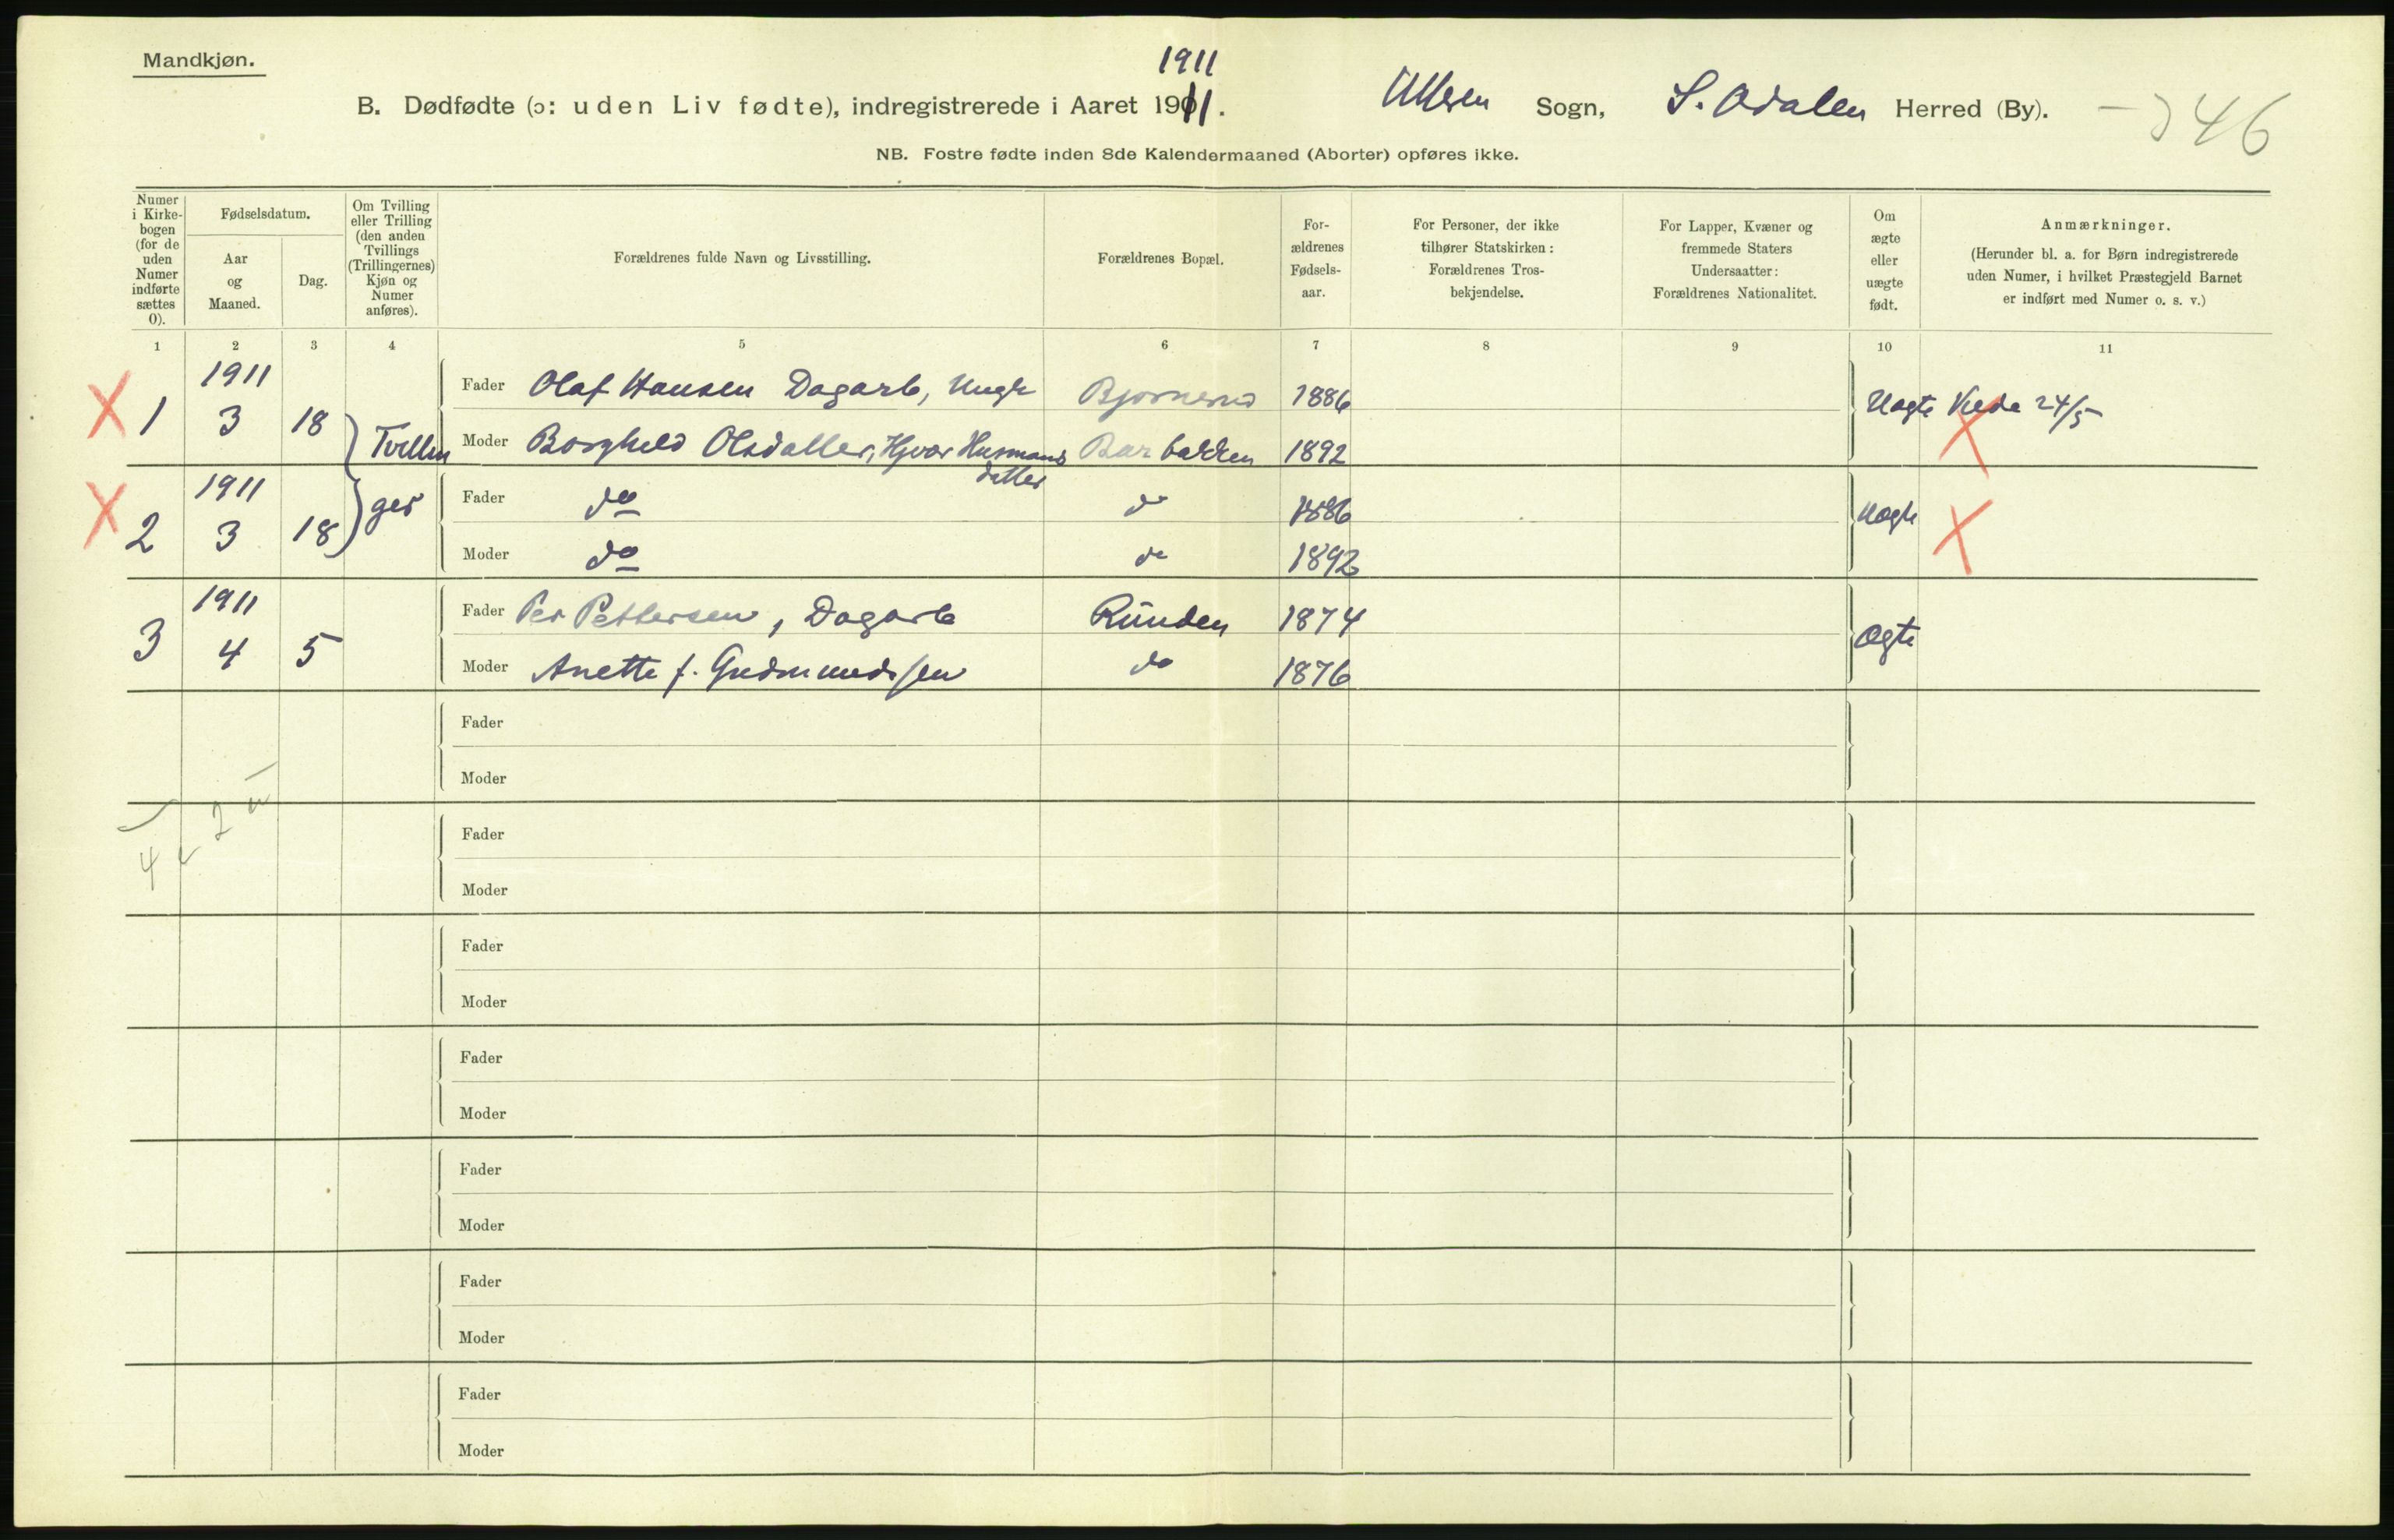 Mandkjøn.
1911
B. Dødfødte (ɔ: uden Liv fødte), indregistrerede i Aaret 1911. Ullern Sogn, S. Odalen Herred (By). 46
NB. Fostre fødte inden 8de Kalendermaaned (Aborter) opføres ikke.
Numer i Kirkebogen (for de uden Numer indførte sættes 0).
Fødselsdatum.
Aar og Maaned.
Dag.
Om Tvilling eller Trilling (den anden Tvillings (Trillingernes) Kjøn og Numer anføres).
Forældrenes fulde Navn og Livsstilling.
Forældrenes Bopæl.
For-
ældrenes
Fødsels-
aar.
For Personer, der ikke
tilhører Statskirken:
Forældrenes Tros-
bekjendelse.
For Lapper, Kvæner og
fremmede Staters
Undersaatter:
Forældrenes Nationalitet.
Om
ægte
eller
uægte
født.
Anmærkninger.
(Herunder bl. a. for Børn indregistrerede
uden Numer, i hvilket Præstegjeld Barnet
er indført med Numer o. s. v.)
1 2 3 4 5 6 7 8 9 10 11
X 1 1911 3 18 Fader Olaf Hansen Dagarb, Ungk 1886 Uægte 24/5 X
Tvillin Moder Borghild Olsdatter, Husmans datter bakken 1892
X 2 1911 3 18 ger Fader do do 1886 Uægte X
Moder do do 1892
3 1911 4 5 Fader Per Pettersen, Dagarb Runden 1874 Ægte
Moder Anette f. Gudmundsen do 1876
Fader
Moder
4 2
Fader
Moder
Fader
Moder
Fader
Moder
Fader
Moder
Fader
Moder
Fader
Moder